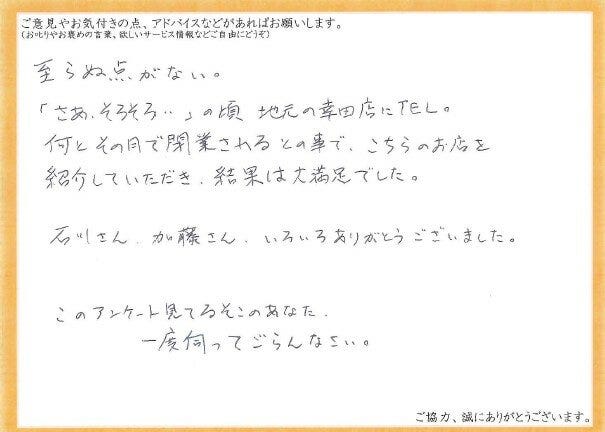 ご意見やお気付きの点、アドバイスなどがあればお願いします。
(お叱りやお褒めの言葉、欲しいサービス情報などご自由にどうぞ)
至らぬ点がない。
「さあ、そろそろ‥」の頃 地元の幸田店にTEL。
何とその日で閉業されるとの事で、こちらのお店を
紹介していただき、結果は大満足でした。
石川さん、加藤さん、いろいろありがとうございました。
このアンケート見てるそこのあなた、
一度伺ってごらんなさい。
ご協力、誠にありがとうございます。